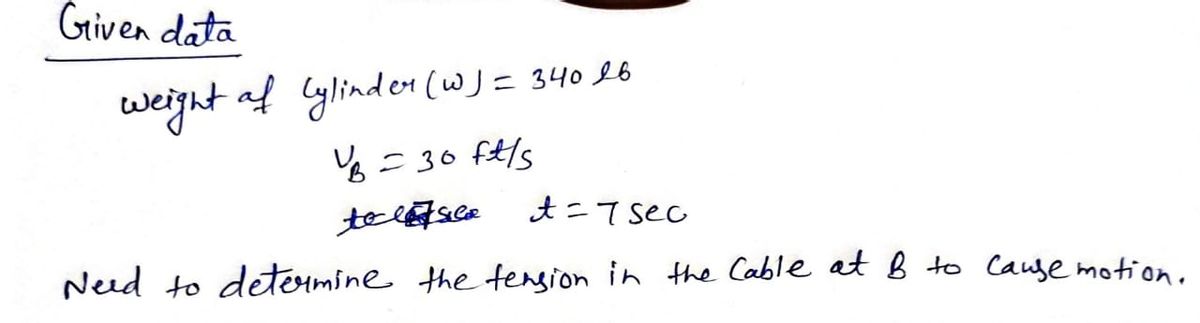 Given data
weight of Cylinder (w) = 340 lb
V_B = 30 ft/s
t = 7 sec
Need to determine the tension in the Cable at B to Cause motion.